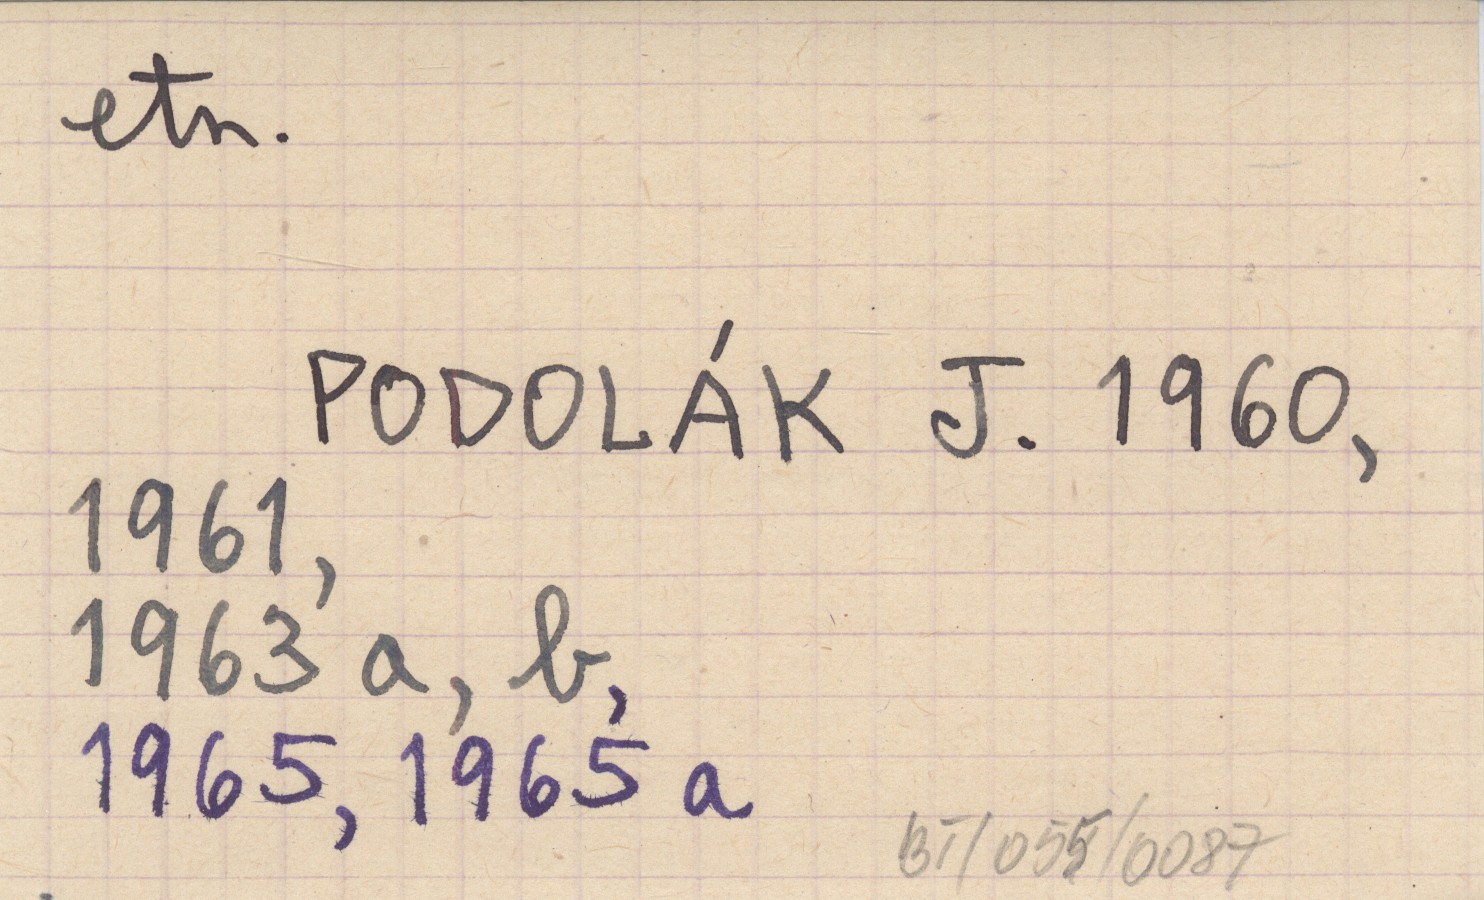 etn.
PODOLÁK J. 1960,
1961,
1963 a, b,
1965, 1965 a
BI/055/0087